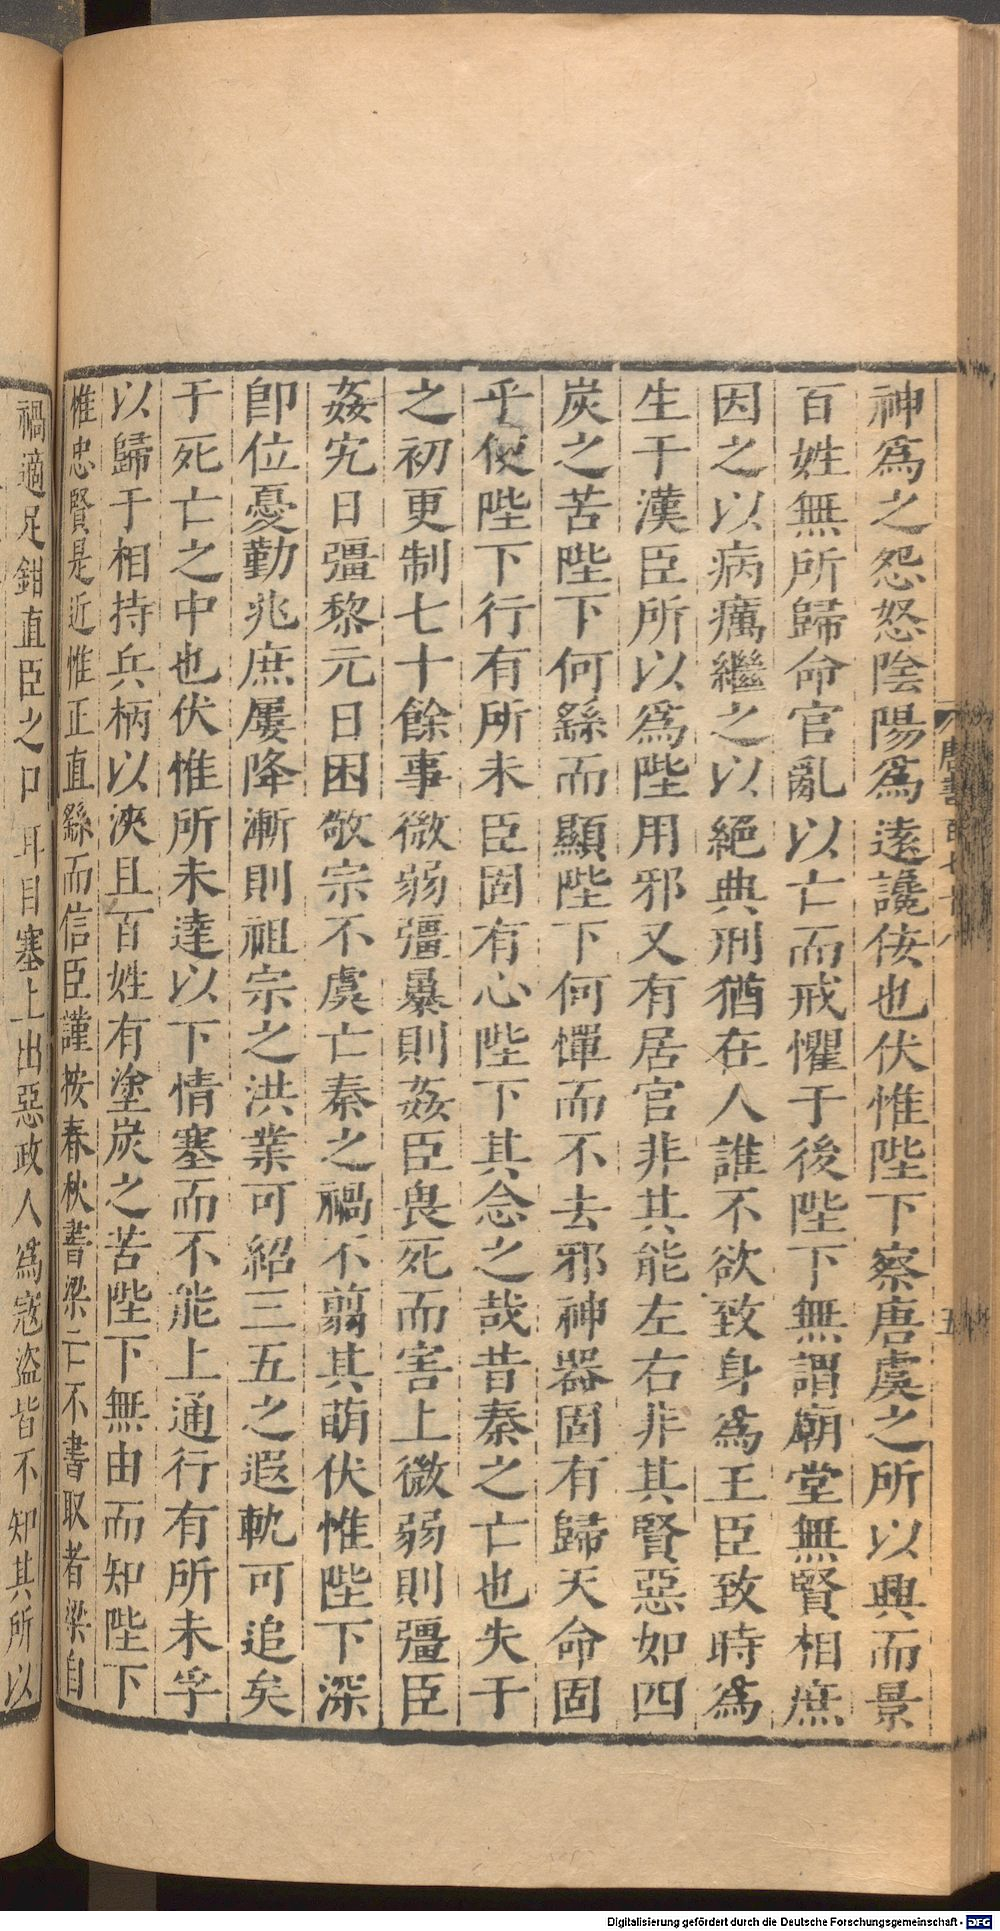 神爲之怨怒陰陽爲遠讒佞也伏惟陛下察唐虞之所以興而景
百姓無所歸命官亂以亡而戒懼于後陛下無謂廟堂無賢相庶
因之以病癘繼之以絕典刑猶在人誰不欲致身爲王臣致時爲
生于漢臣所以爲陛用邪又有居官非其能左右非其賢惡如四
炭之苦陛下何繇而顯陛下何憚而不去邪神器固有歸天命固
乎使陛下行有所未臣固有心陛下其念之哉昔秦之亡也失于
之初更制七十餘事微弱彊暴則姦臣畏死而害上微弱則彊臣
姦宄日彊黎元日困敬宗不虞亡秦之禍不翦其萌伏惟陛下深
卽位憂勤兆庶屢降漸則祖宗之洪業可紹三五之遐軌可追矣
于死亡之中也伏惟所未達以下情塞而不能上通行有所未孚
以歸于相持兵柄以浹且百姓有塗炭之苦陛下無由而知陛下
惟忠賢是近惟正直繇而信臣謹按春秋書梁亡不書取者梁自
禍適足鉗直臣之口耳目塞上出惡政人爲寇盜皆不知其所以
唐書
五
Digitalisierung gefördert durch die Deutsche Forschungsgemeinschaft - DFG